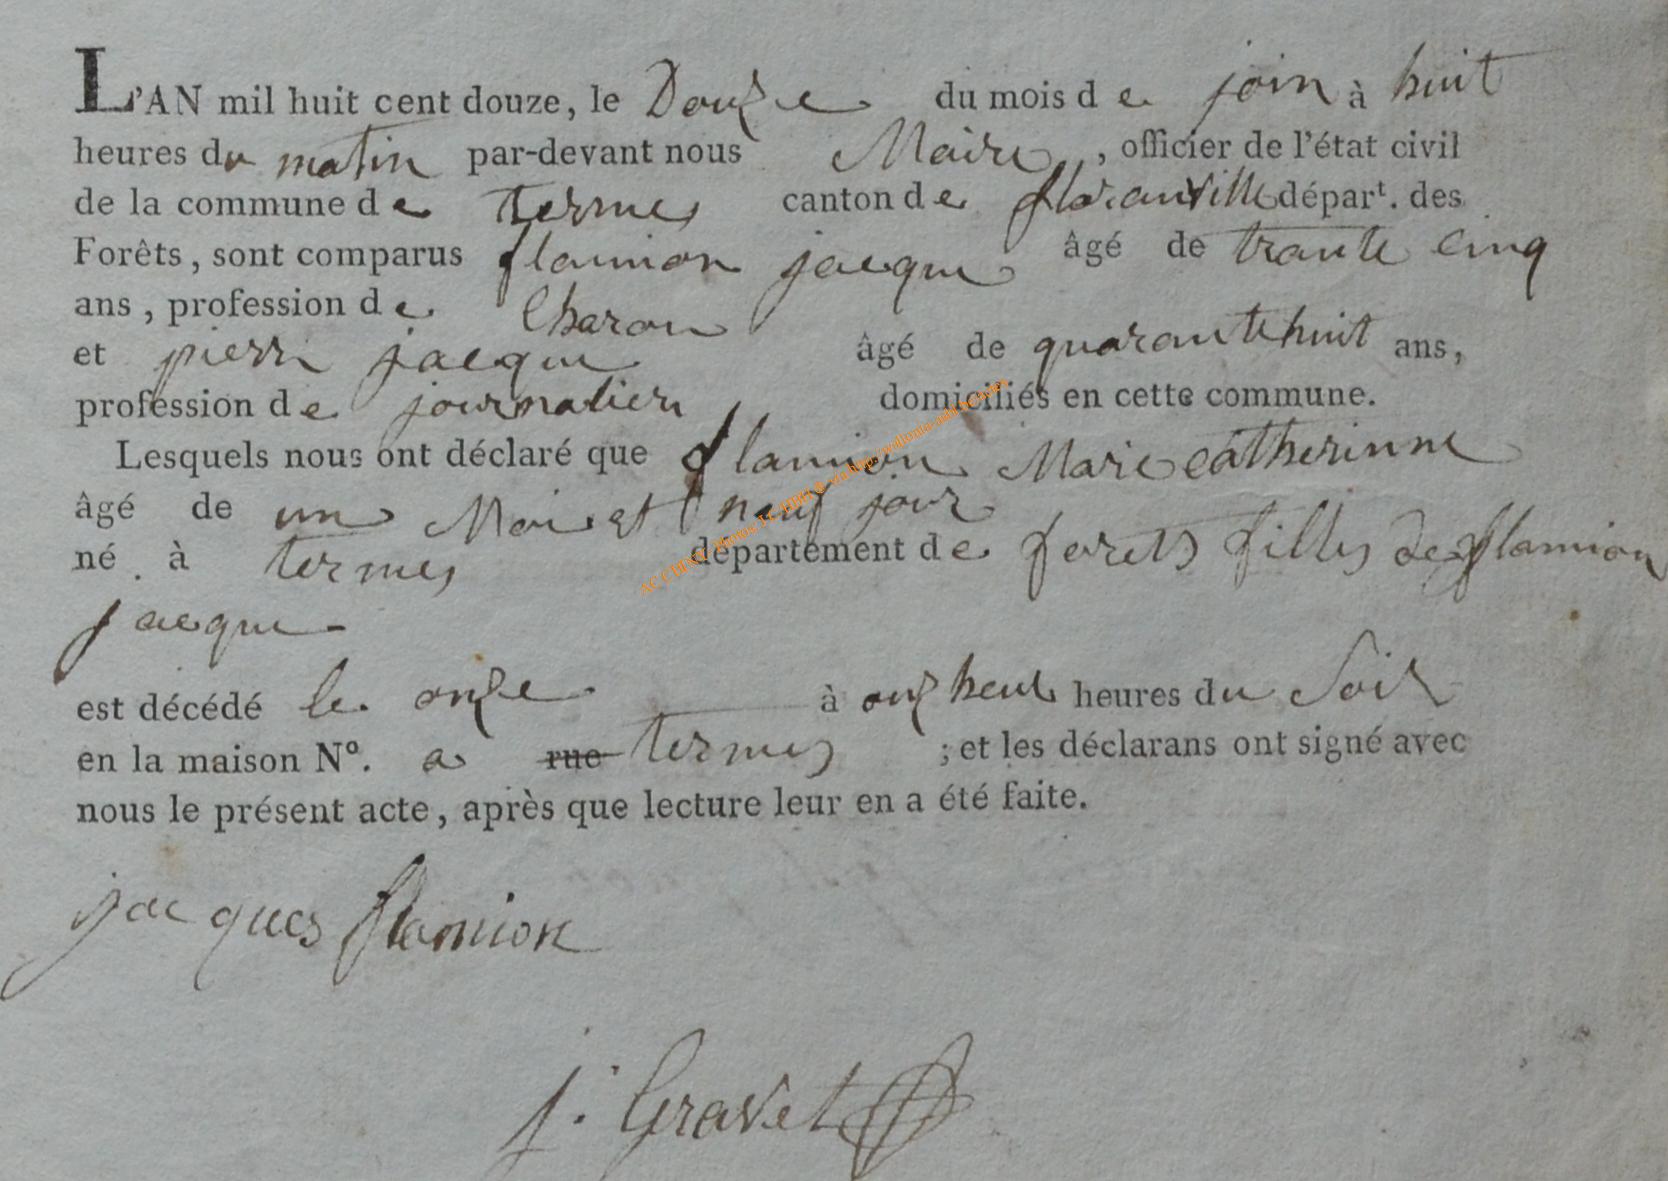 L'AN mil huit cent douze, le Douze du mois de join à huit
heures du matin par-devant nous Maire, officier de l'état civil
de la commune de termes canton de floranville départ. des
Forêts, sont comparus flamion jacque âgé de trante cinq
ans, profession de Charon
et pierre jacque âgé de quarante huit ans,
profession de journalier domiciliés en cette commune.
Lesquels nous ont déclaré que flamion Marie catherinne
âgé de un Moi et neuf jour
né à termes département de forets filles de flamion
jacque
est décédé le onze à onz heur heures du Soir
en la maison N°. a rue termes ; et les déclarans ont signé avec
nous le présent acte, après que lecture leur en a été faite.
jacques flamion
j. Gravet